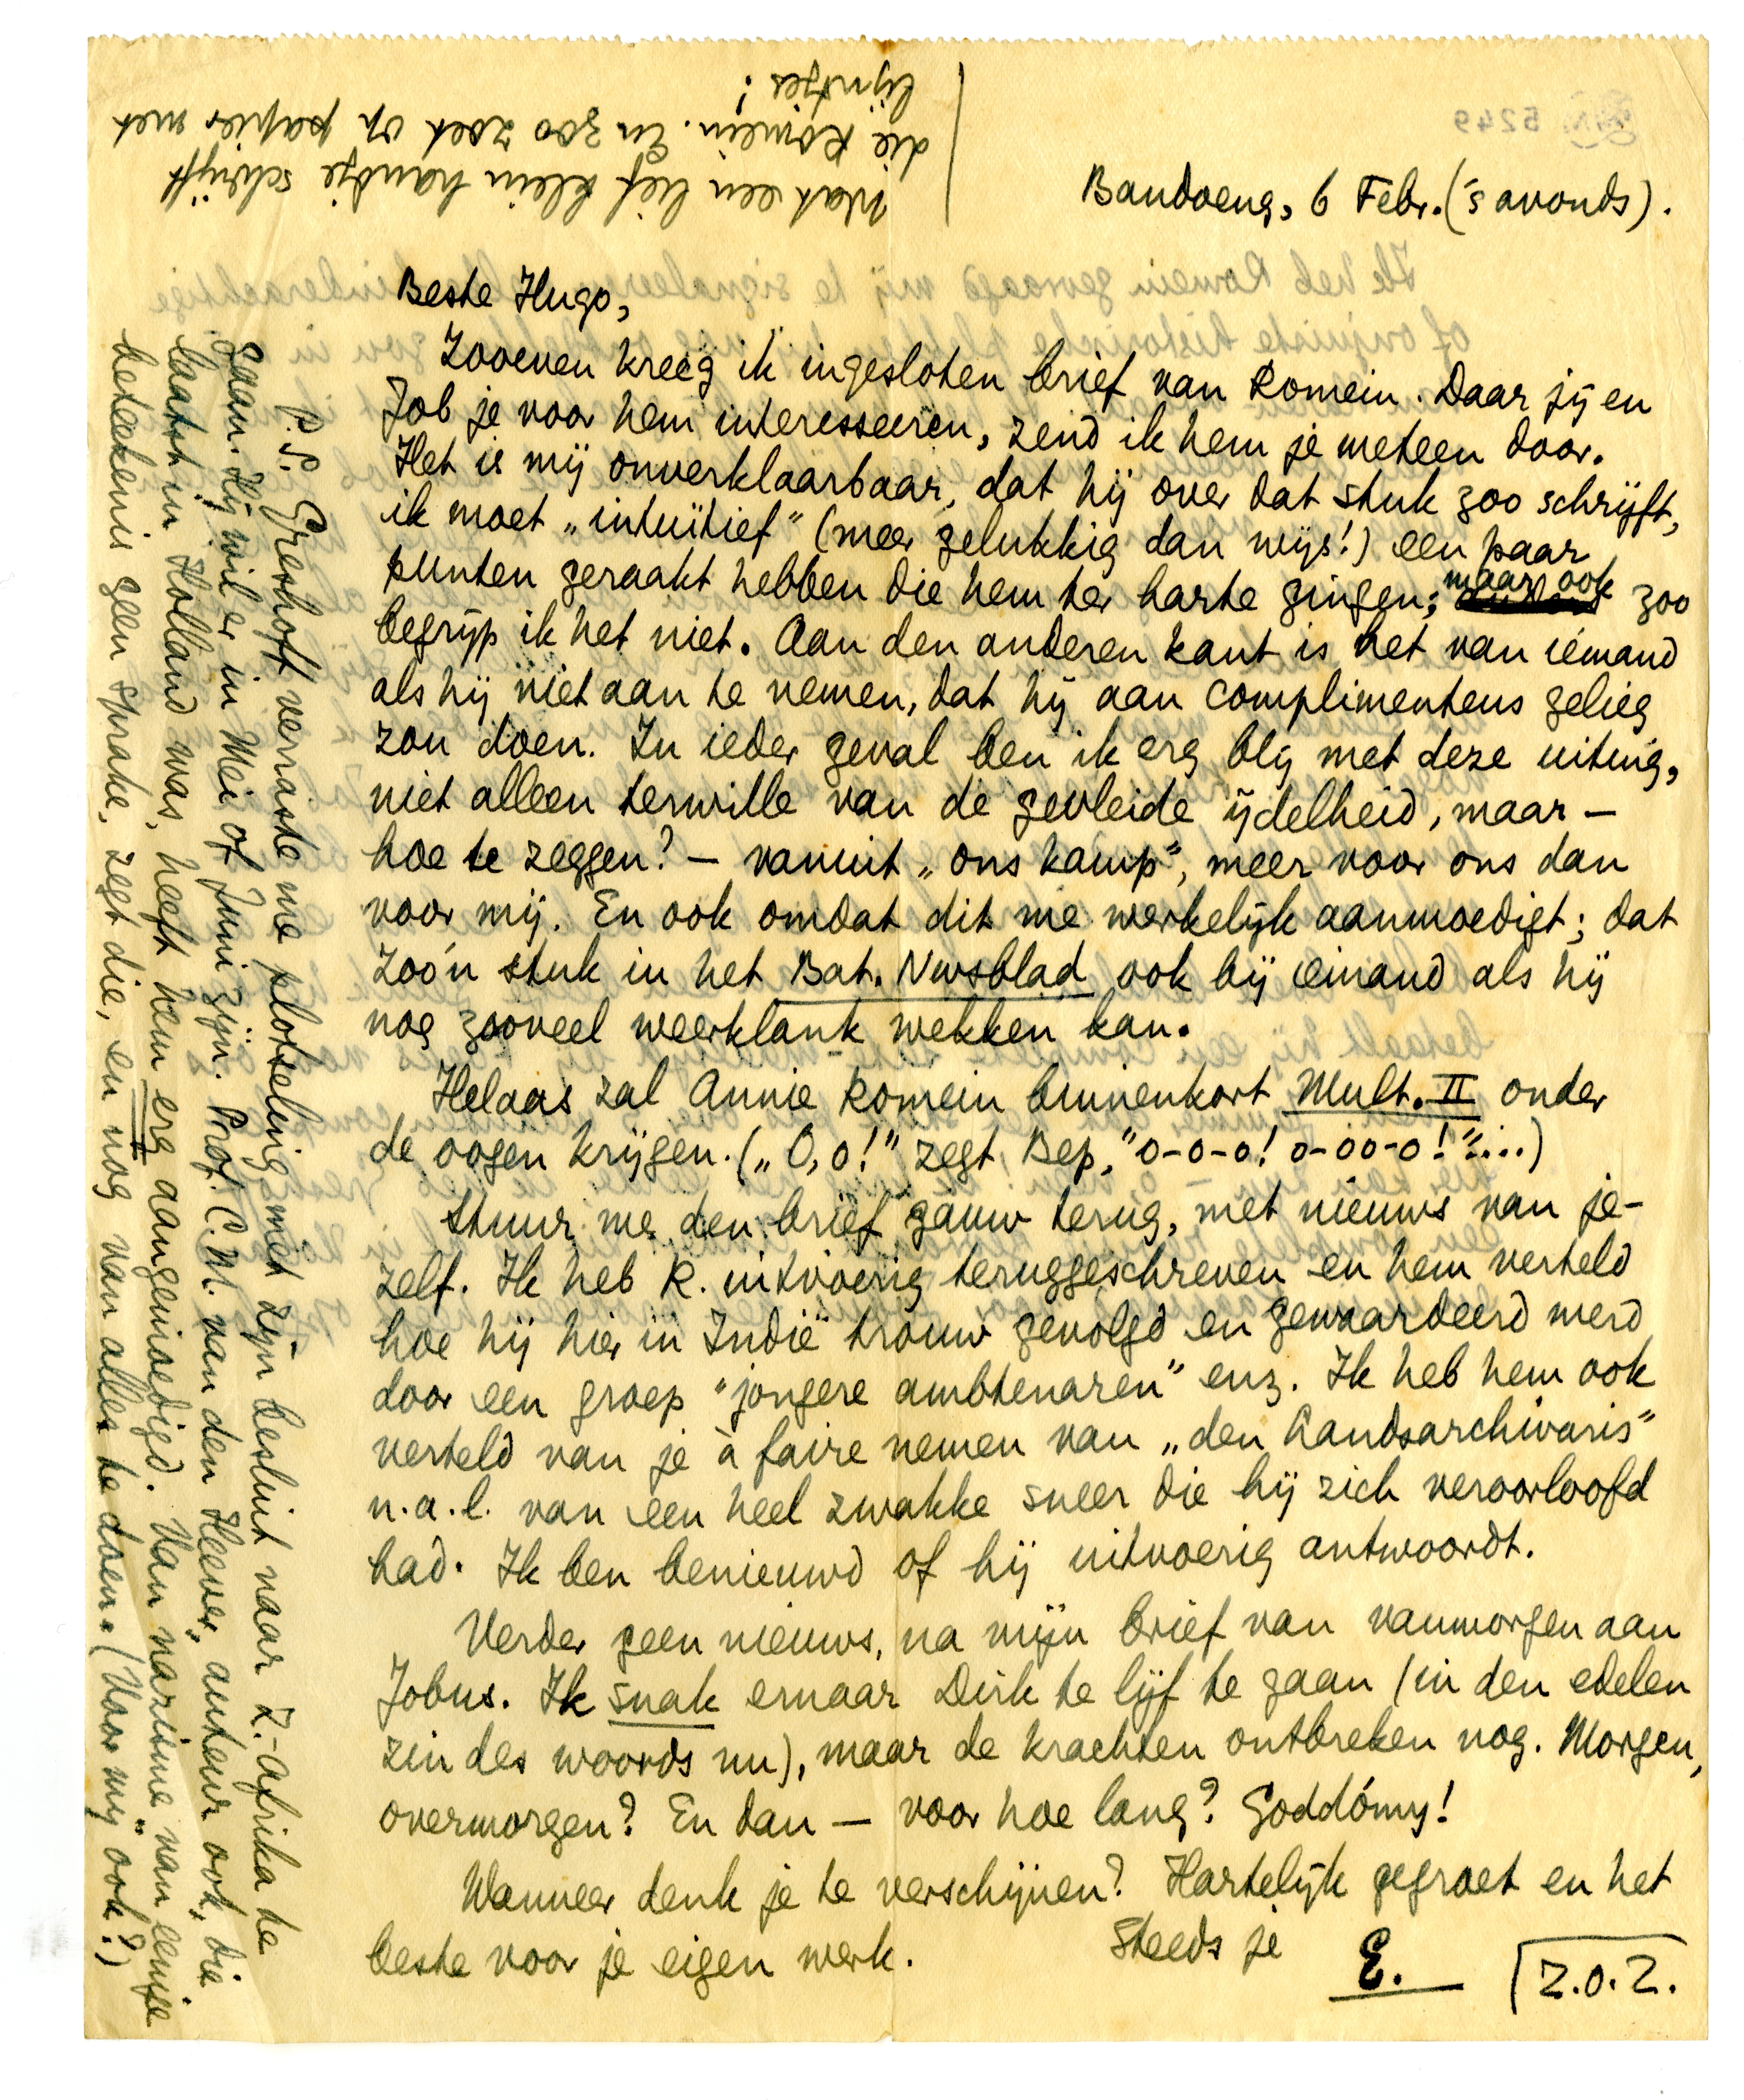 Bandoeng, 6 Febr. ('s avonds).
Beste Hugo,
Zooeven kreeg ik ingesloten brief van Romein. Daar jij en
Job je voor hem interesseeren, zend ik hem je meteen door.
Het is mij onverklaarbaar, dat hij over dat stuk zoo schrijft,
ik moet „intuïtief" (meer gelukkig dan wijs!) een paar
punten geraakt hebben die hem ter harte gingen; maar ook zoo
begrijp ik het niet. Aan den anderen kant is het van iemand
als hij niet aan te nemen, dat hij aan complimenteus gelieg
zou doen. In ieder geval ben ik erg blij met deze uiting,
niet alleen terwille van de gevleide ijdelheid, maar —
hoe te zeggen? — vanuit „ons kamp", meer voor ons dan
voor mij. En ook omdat dit me werkelijk aanmoedigt; dat
zoo'n stuk in het Bat. Nwsblad ook bij iemand als hij
nog zooveel weerklank wekken kan.
Helaas zal Annie Romein binnenkort Mult. II onder
de oogen krijgen. („O, o!" zegt Bep, "o-o-o! o-oo-o!"....)
Stuur me den brief gauw terug, met nieuws van je-
zelf. Ik heb R. uitvoerig teruggeschreven en hem verteld
hoe hij hier in Indië trouw gevolgd en gewaardeerd werd
door een groep "jongere ambtenaren" enz. Ik heb hem ook
verteld van je à faire nemen van „den Landsarchivaris"
n.a.l. van een heel zwakke sneer die hij zich veroorloofd
had. Ik ben benieuwd of hij uitvoerig antwoordt.
Verder geen nieuws, na mijn brief van vanmorgen aan
Jobus. Ik snak ernaar Dirk te lijf te gaan (in den edelen
zin des woords nu), maar de krachten ontbreken nog. Morgen,
overmorgen? En dan — voor hoe lang? Goddómy!
Wanneer denk je te verschijnen? Hartelijk gegroet en het
beste voor je eigen werk. Steeds je
E.
Z.O.Z.
P.S. Greshoff verraste me plotseling met zijn besluit naar Z.-Afrika te
gaan. Hij wil er in Mei of Juni zijn. Prof. C.M. van den Heever, auteur ook, die
laatst in Holland was, heeft hem erg aangemoedigd. Van nazisme „van eenige
beteekenis" geen sprake, zegt die, en nog van alles te doen. (Voor mij ook?)
Wat een lief klein handje schrijft
die Romein. En zoo zoet op papier met
lijntjes!
5249